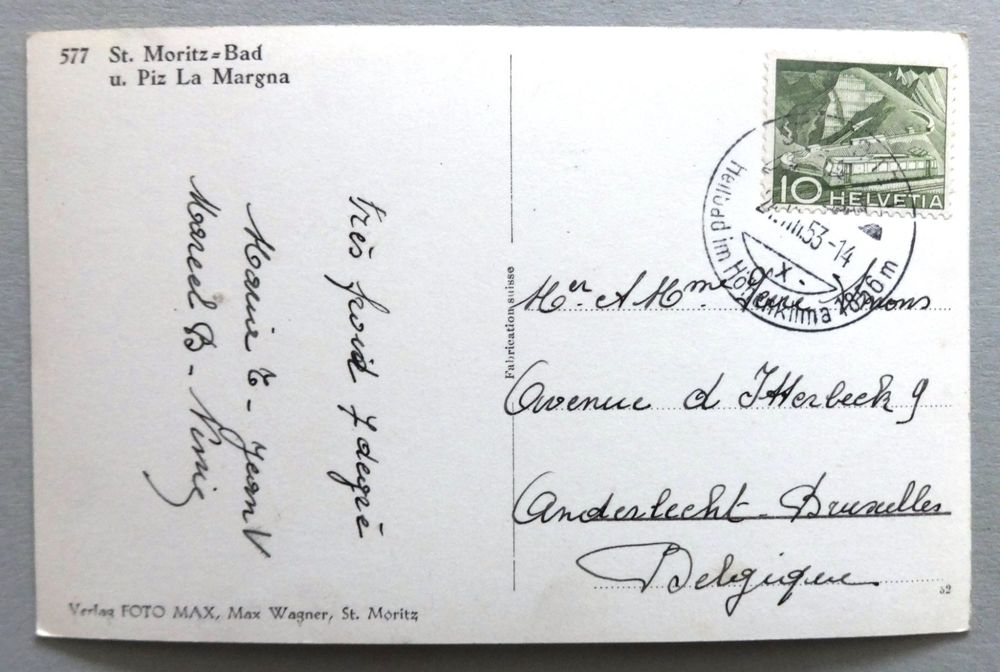 577 St. Moritz=Bad
u. Piz La Margna
Très froid 7 degrè
Marie T - Jean V
Marcel B -
Fabrication suisse
10 HELVETIA
VIII.53-14
Heilbad im Höhenklima 1856 m
Mr & Mme Simons
Avenue d Itterbeek 9
Anderlecht - Bruxelles
Belgique
52
Verlag FOTO MAX, Max Wagner, St. Moritz